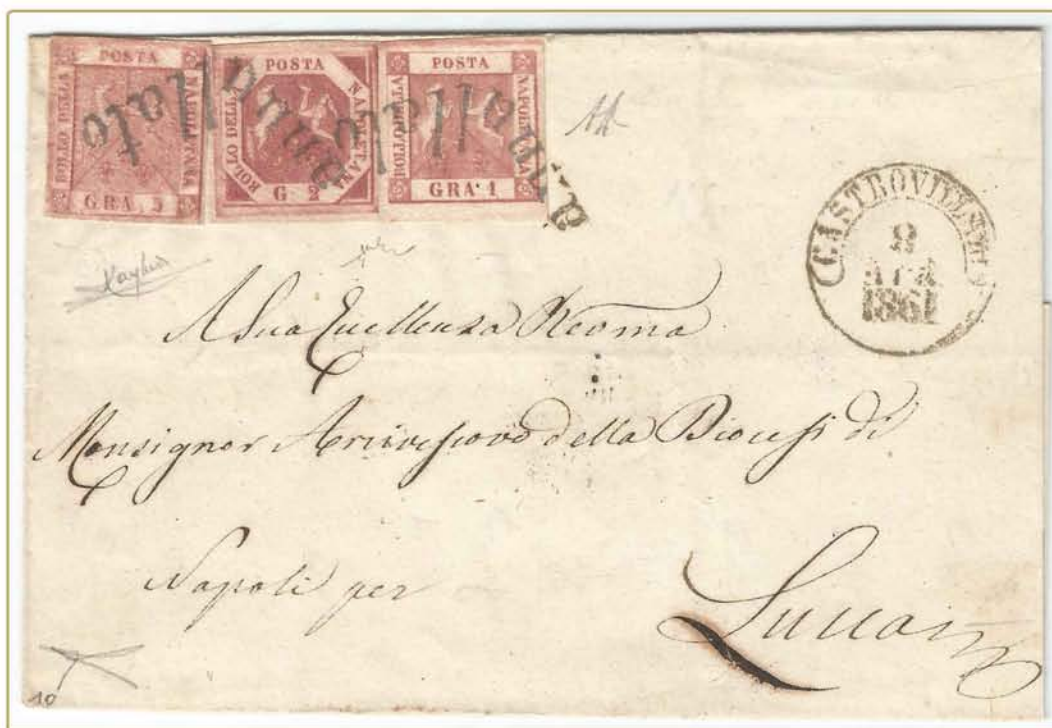 POSTA
BOLLO DELLA
NAPOLETANA
GRA. 5
POSTA
BOLLO DELLA
NAPOLETANA
G 2
POSTA
BOLLO DELLA
NAPOLETANA
GRA. 1
Annullato
Annullato
CASTROVILLARI
8
APR
1861
A Sua Eccellenza Revma
Monsignor Arcivescovo della Diocesi di
Napoli per
Lucca
10